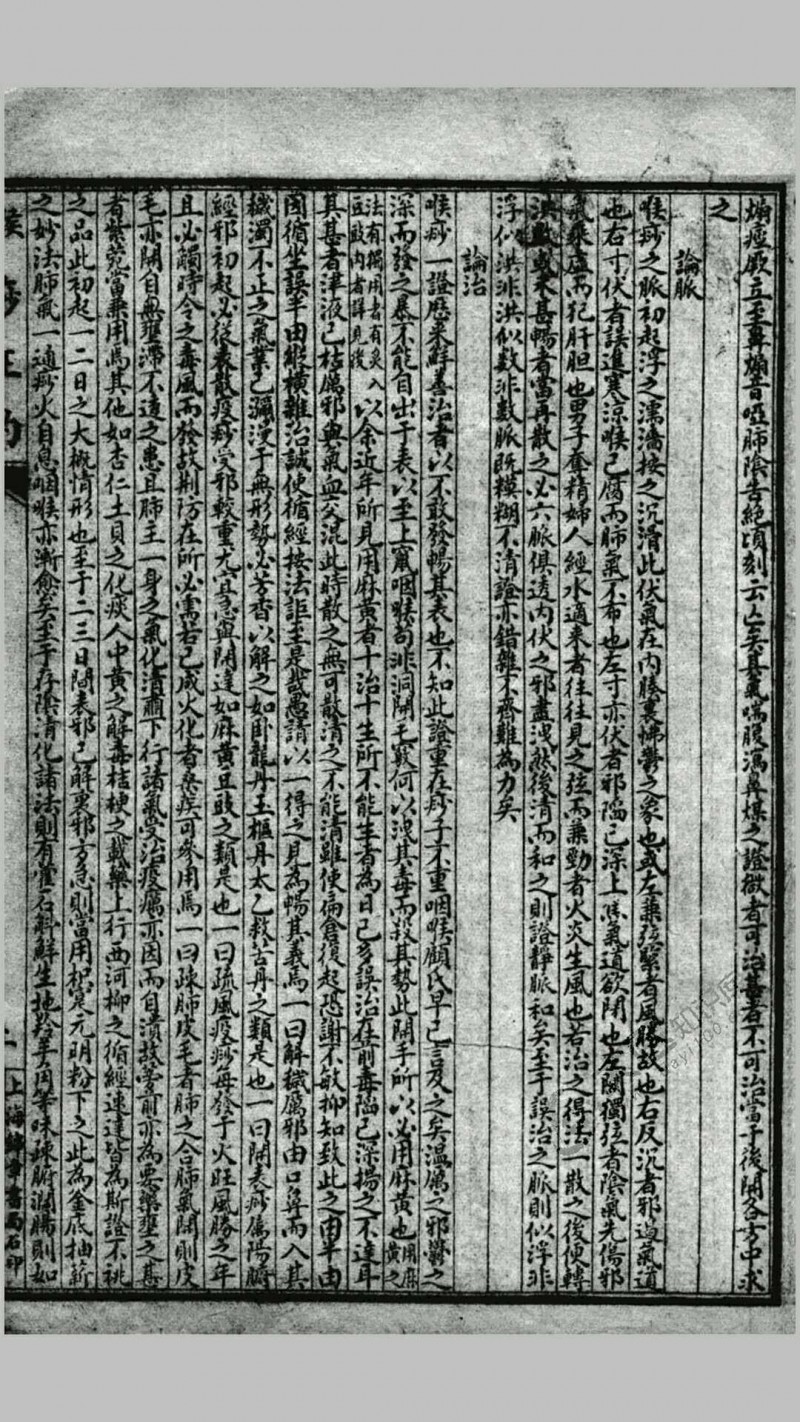 煽痙厥立至再煽音啞肺陰告絕頃刻云亡矣其氣喘腹瀉鼻煤之證微者可治甚者不可治當于後開各方中求
之
論脈
喉痧之脈初起浮之濡濇按之沉滑此伏氣在內腠裏怫鬱之象也或左兼弦緊者風勝故也右反沉者邪遏氣道
也右寸伏者誤進寒涼喉已腐而肺氣不布也左寸亦伏者邪陷已深上焦氣道欲閉也左關獨弦者陰氣先傷邪
氣乘虛而犯肝胆也男子奪精婦人經水適來者往往見之弦而兼勁者火炎生風也若治之得法一散之後便轉
洪數或未甚暢者當再散之必六脈俱透內伏之邪盡洩然後清而和之則證靜脈和矣至于誤治之脈則似浮非
浮似洪非洪似数非數脈既糢糊不清證亦錯雜不齊難為力矣
論治
喉痧一證歷來鮮善治者以不敢發暢其表也不知此證重在痧子不重咽喉顧氏早已言及之矣溫厲之邪鬱之
深而發之暴不能自出于表以至上竄咽喉苟非洞開毛竅何以洩其毒而殺其勢此開手所以必用麻黃也用麻黃之
法有獨用者有炙入豆豉內者詳見後以余近年所見用麻黃者十治十生所不能生者為日已多誤治在前毒陷已深揚之不達耳
其甚者津液已枯厲邪與氣血父混此時散之無可散清之不能清雖使扁倉復起恐謝不敏抑知致此之由半由
因循坐誤半由縱橫雜治誠使循經按法詎至是哉愚請以一得之見為暢其義焉一曰解穢厲邪由口鼻而入其
穢濁不正之氣業已瀰漫于無形勢必芳香以解之如卧龍丹玉樞丹太乙救苦丹之類是也一曰開表痧偽陽腑
經邪初起必從表散疫痧受邪較重尤宜急寧開達如麻黃豆豉之類是也一曰疏風疫痧每發于火旺風勝之年
且必觸時令之毒風而發故荆防在所必需若已成火化者桑疾可參用焉一曰疎肺皮毛者肺之合肺氣開則皮
毛亦開自無壅滯不透之患且肺主一身之氣化清肅下行諸氣受治疫厲亦因而自潰故蒡前亦為要藥壅之甚
者紫菀當兼用焉其他如杏仁土貝之化痰人中黃之解毒桔梗之載藥上行西河柳之循經速達皆為斯證不祧
之品此初起一二日之大概情形也至于二三日間表邪已解裏邪方急則當用枳實元明粉下之此為釜底抽薪
之妙法肺氣一通痧火自息咽喉亦漸愈矣至于存陰清化諸法則有霍石斛鮮生地羚羊角等味疎腑潤腸則如
上海
書局石印